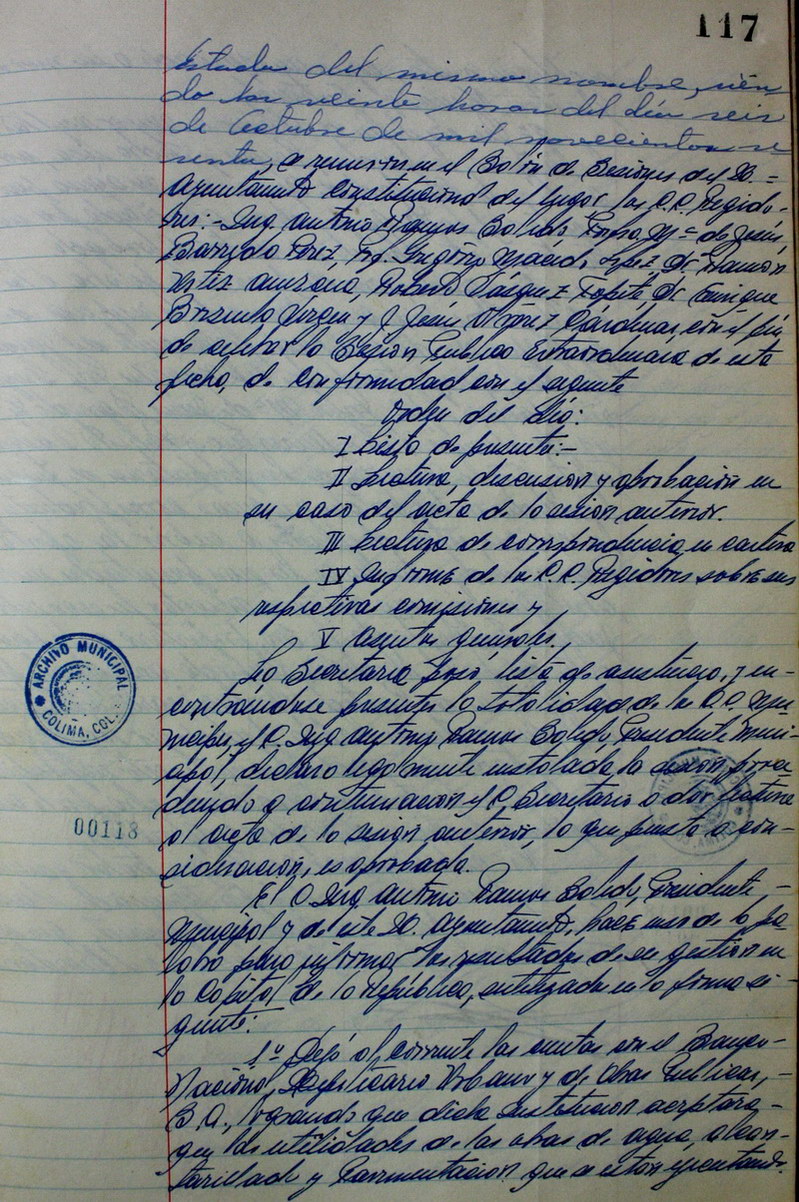 117
Estado del mismo nombre, sien
do las veinte horas del día seis
de Octubre de mil novecientos se
senta, se reunieron en el Salón de Sesiones del H. =
Ayuntamiento Constitucional del lugar los C.C. Regido-
res:- Ing. Antonio Ramos Salido, Profa. Ma de Jesús
Barreda Pérez, Ing. Gregorio Macedo López, Dr. Ramón
Artiz Roberto Vásquez Topete, Dr. Enrique
Brizuela Virgen y J. Jesús Cárdenas, con el fin
de celebrar la Sesión Pública Extraordinaria de esta
fecha, de conformidad con el siguiente
Orden del día:
I Lista de presente:-
II Lectura, discusión y aprobación en
su caso del acta de la sesión anterior.
III Lectura de correspondencia en cartera
IV Informe de los C.C. Regidores sobre sus
respectivas comisiones y
V Asuntos generales.
La Secretaría pasó lista de asistencia, y en-
contrándose presentes la totalidad de los C.C. Mu-
nícipes, el C. Ing. Antonio Ramos Salido, Presidente Muni-
cipal, declaró legalmente instalada la sesión proce
diendo a continuación el C. Secretario a dar lectura
al acta de la sesión anterior, la que puesta a con-
sideración, es aprobada.
El C. Ing. Antonio Ramos Salido, Presidente, -
Municipal y de este H. Ayuntamiento, hace uso de la pa
labra para informar los resultados de su gestión en
la Capital de la república, sintetizada en la forma si-
guiente:
1o Dejó al corriente las cuentas con el Banco-
Nacional, Hipotecario Urbano y de Obras Públicas, -
S.A., logrando que dicha institución aceptara -
que las utilidades de las obras de agua, alcan-
tarillado y Pavimentación que se están ejecutando.
ARCHIVO MUNICIPAL
COLIMA, COL.
00118